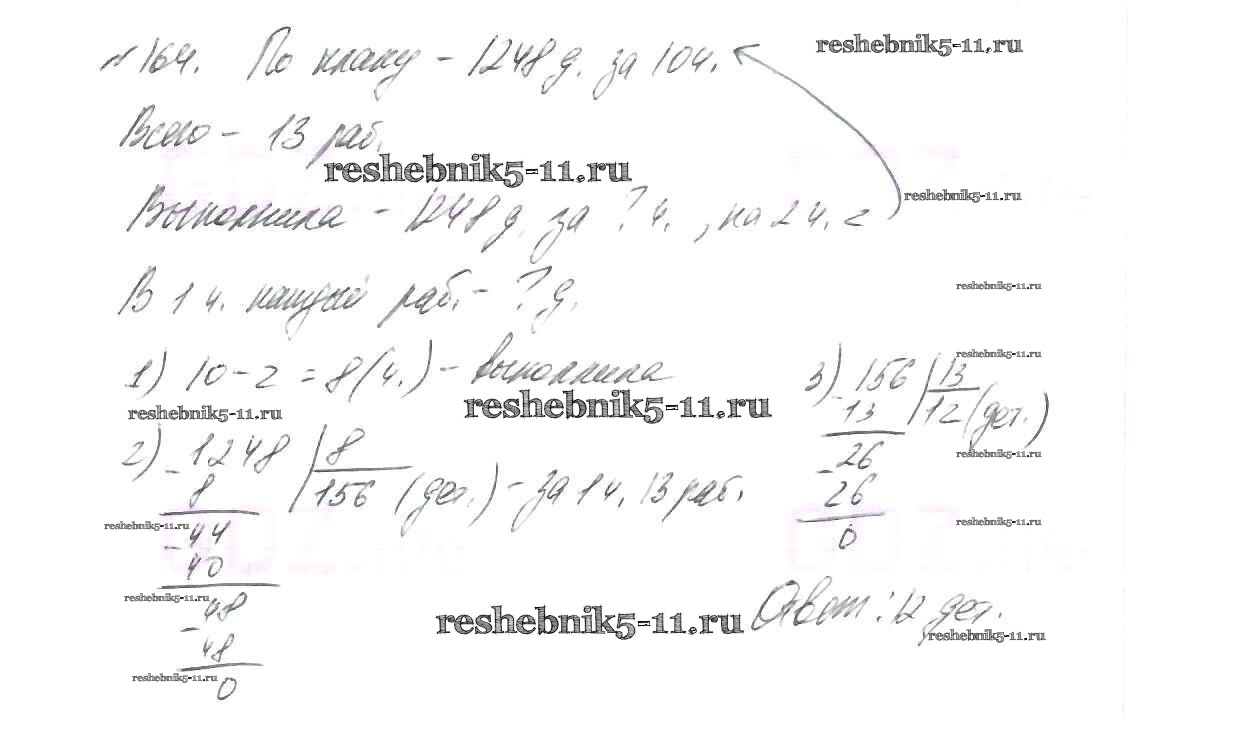 №164. По плану – 1248 д. за 10 ч.
reshebnik5-11.ru
Всего – 13 раб.
reshebnik5-11.ru
reshebnik5-11.ru
Выполнила – 1248 д. за ? ч., на 2 ч. <
В 1 ч. каждый раб. – ? д.
reshebnik5-11.ru
1) 10 – 2 = 8 (ч.) – выполнила
reshebnik5-11.ru
reshebnik5-11.ru
reshebnik5-11.ru
2) – 1248 | 8
8 | 156 (дет.) – за 1 ч. 13 раб.
– 44
40
– 48
48
0
3) – 156 | 13
13 | 12 (дет.)
– 26
26
0
reshebnik5-11.ru
reshebnik5-11.ru
reshebnik5-11.ru
reshebnik5-11.ru
reshebnik5-11.ru
Ответ: 12 дет.
reshebnik5-11.ru
reshebnik5-11.ru